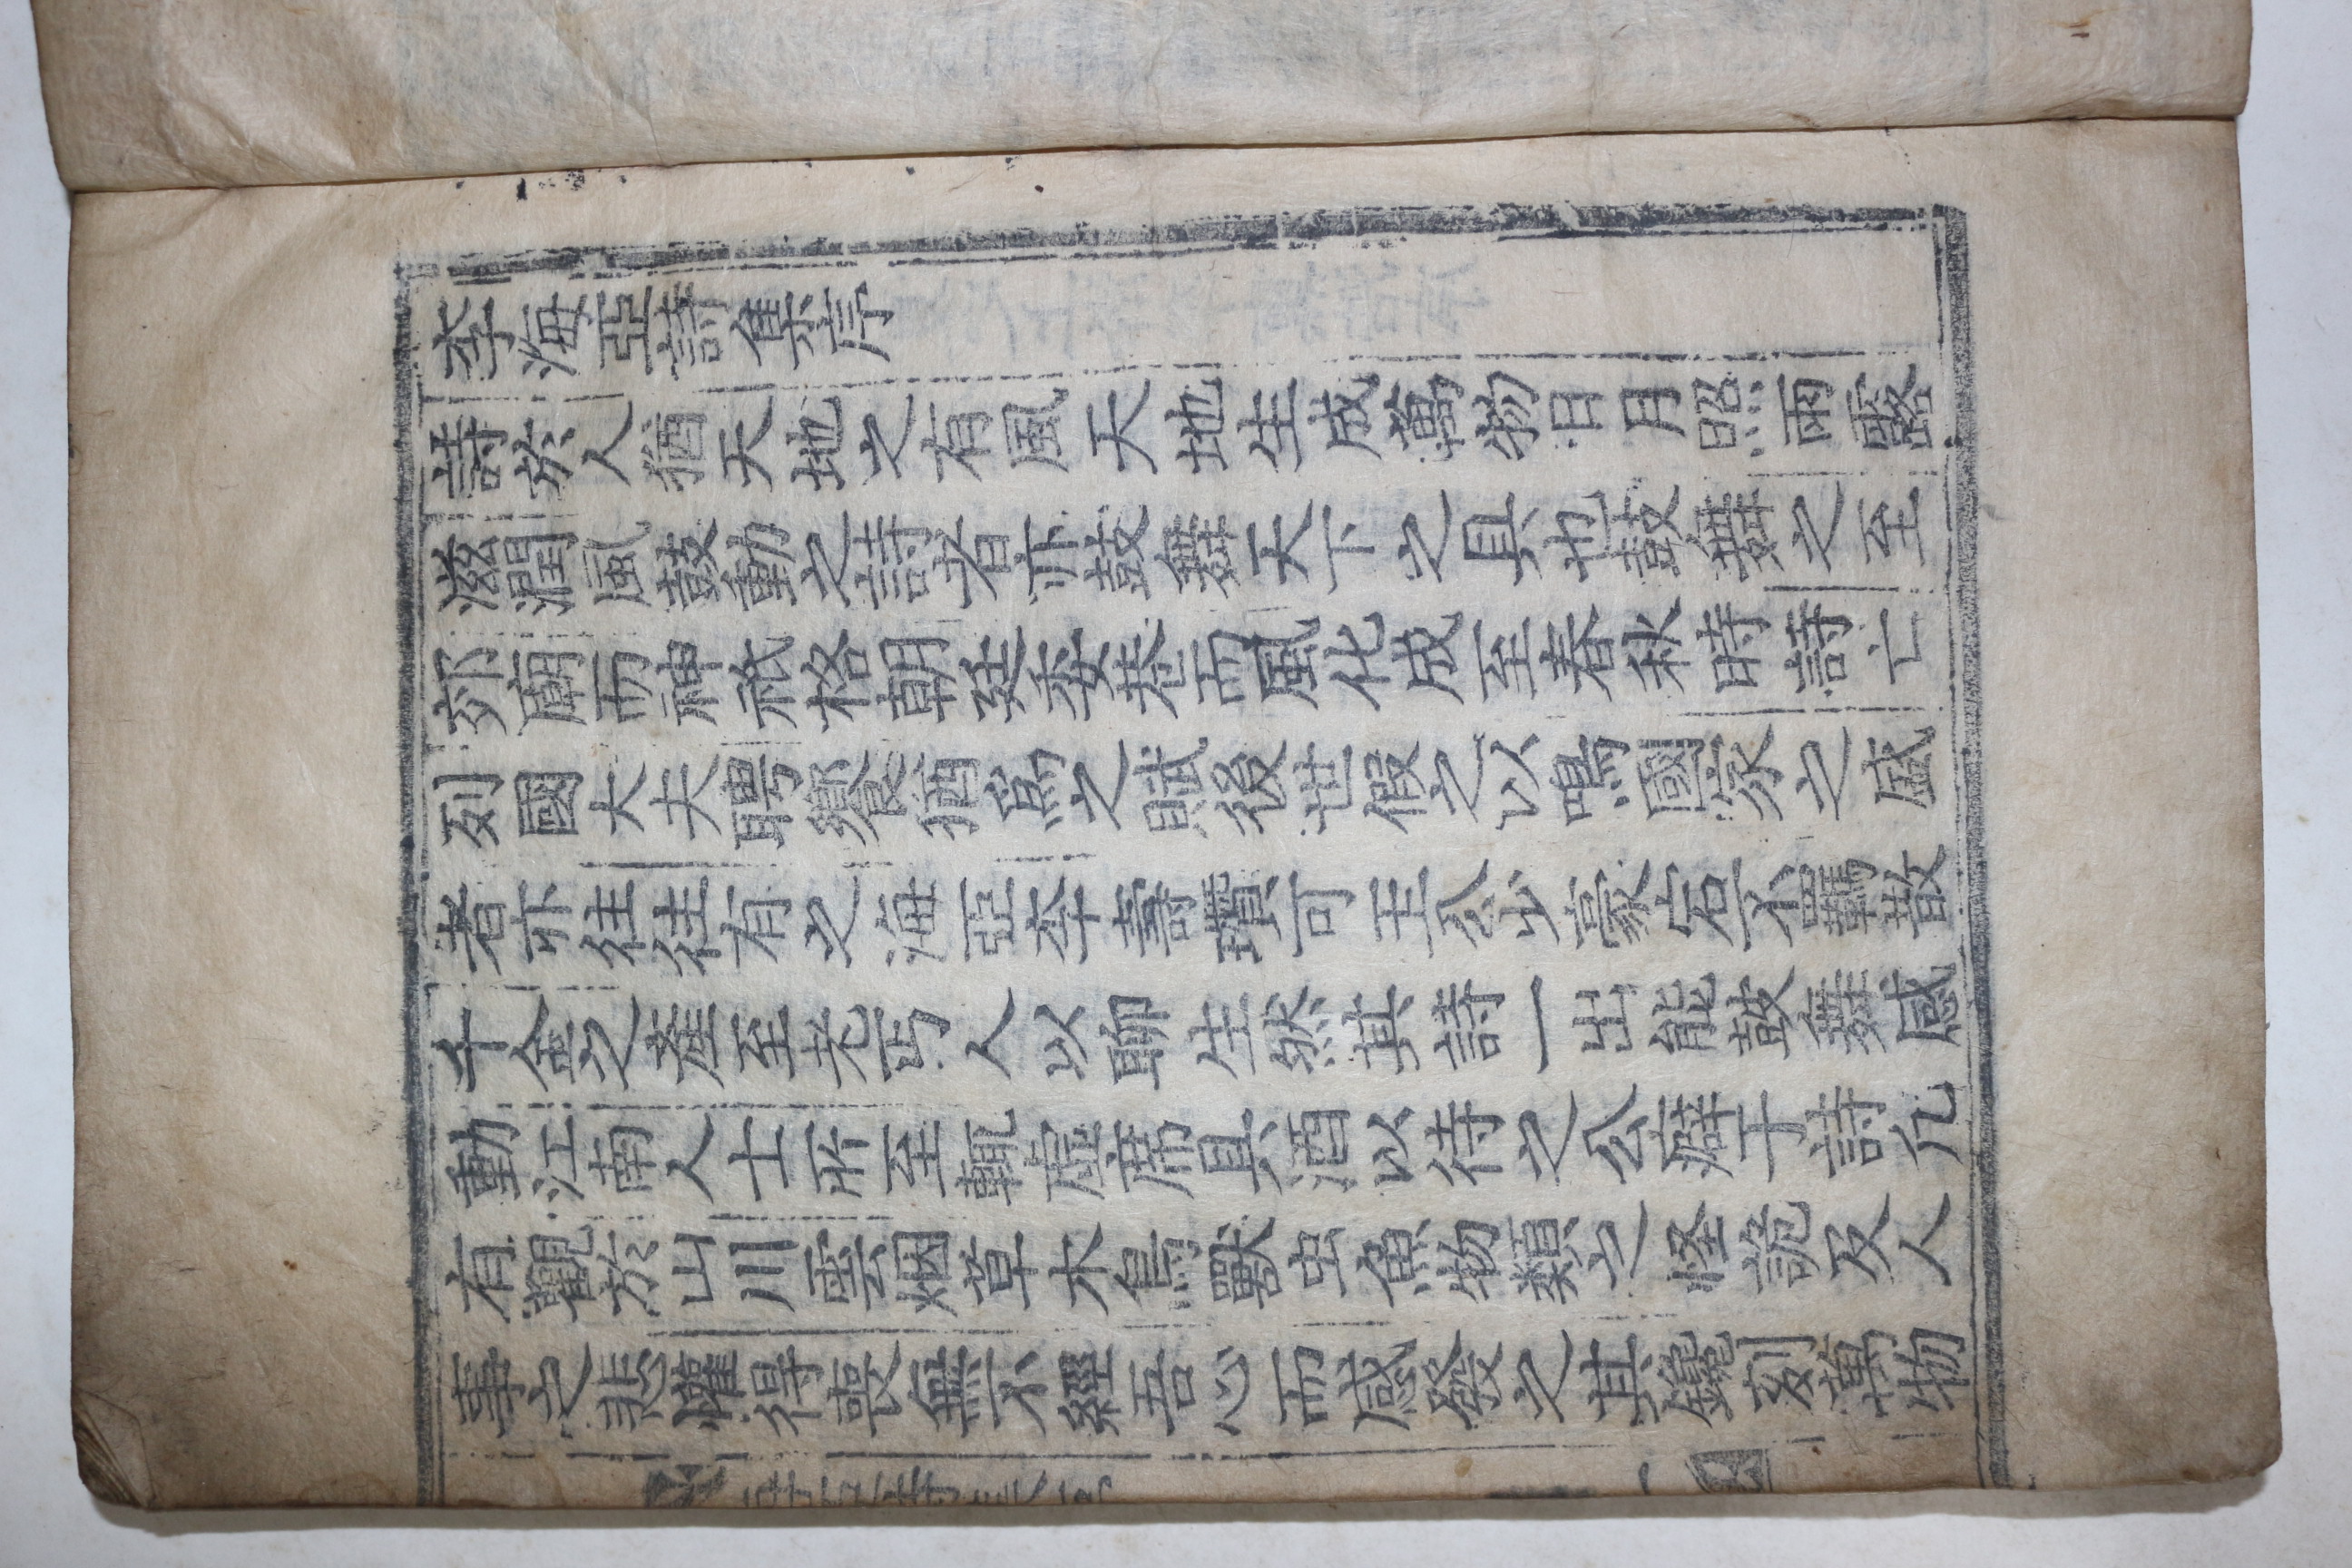 李海亞詩集序
詩於人猶天地之有風天地生成萬物日月照雨露
滋潤風鼓動之詩者亦鼓舞天下之具也鼓舞之至
郊廟而神祇格朝廷委巷而風化成至春秋時詩亡
列國大夫聘饗猶爲之賦後世假之以鳴國家之盛
者亦往往有之海亞李壽瓚可王公少豪宕不羈散
千金之產至老丐人以聊生然其詩一出能鼓舞感
動江南人士所至輒虛席具酒以待之公癖于詩凡
有觀於山川雲烟草木鳥獸虫魚物類之怪詭及人
事之悲懽得喪無不經吾心而感發之其鑱刻萬物